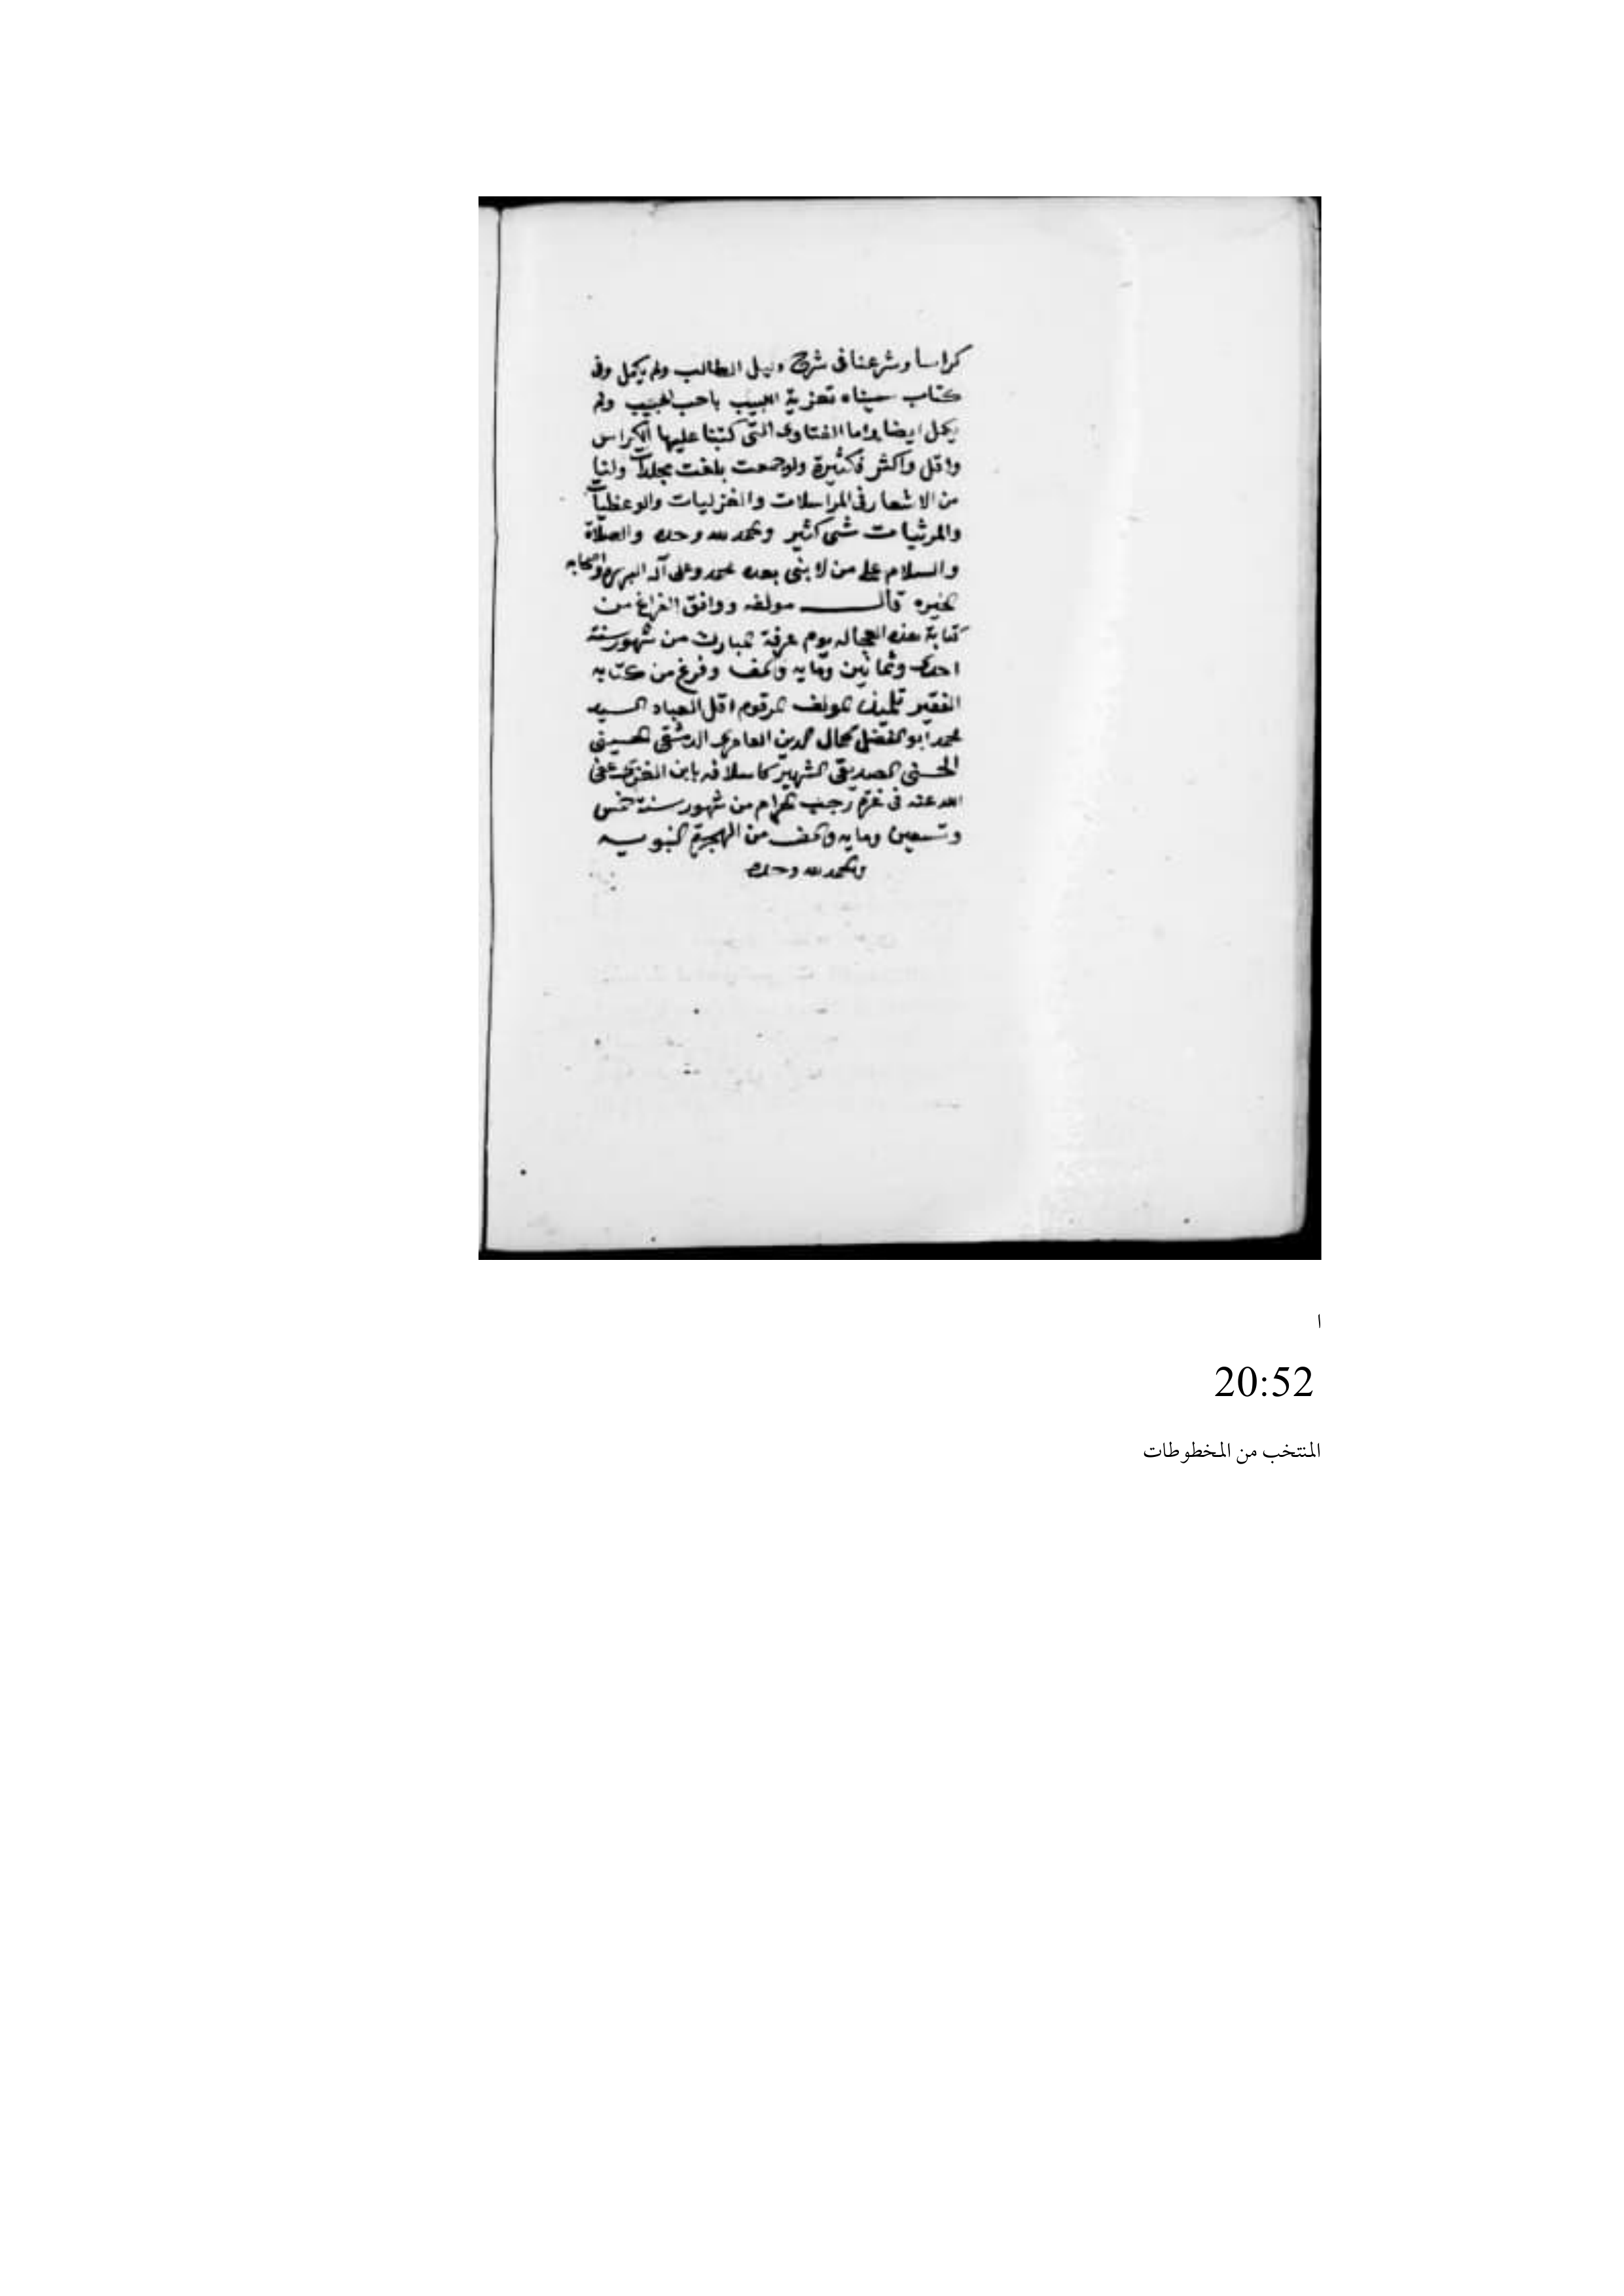 كراسا وشرعنا في شرح دليل الطالب ولم يكمل وفي
كتاب سميناه تعزية اللبيب باحب الحبيب ولم
يكمل ايضا واما الفتاوى التي كتبنا عليها الكراس
واقل واكثر فكثيرة ولو جمعت بلغت مجلدات ولنا
من الاشعار في المراسلات والغزليات والوعظيات
والمرثيات شي كثير والحمد لله وحده والصلاة
والسلام على من لا نبي بعده محمد وعلى آله البررة واصحابه
الخيره قال مولفه ووافق الفراغ من
كتابة هذه العجاله يوم عرفة المبارك من شهور سنة
احدى وثمانين ومايه والف وفرغ من كتابه
الفقير تلميذ المولف المرقوم اقل العباد السيد
محمد ابو الفضل كمال الدين العامري الدمشقي الحسيني
الحسني الصديقي الشهير كاسلافه بابن الغزي عفى
الله عنه في غرة رجب الحرام من شهور سنة خمس
وتسعين ومايه والف من الهجرة النبويه
والحمد لله وحده
ا
20:52
المنتخب من المخطوطات